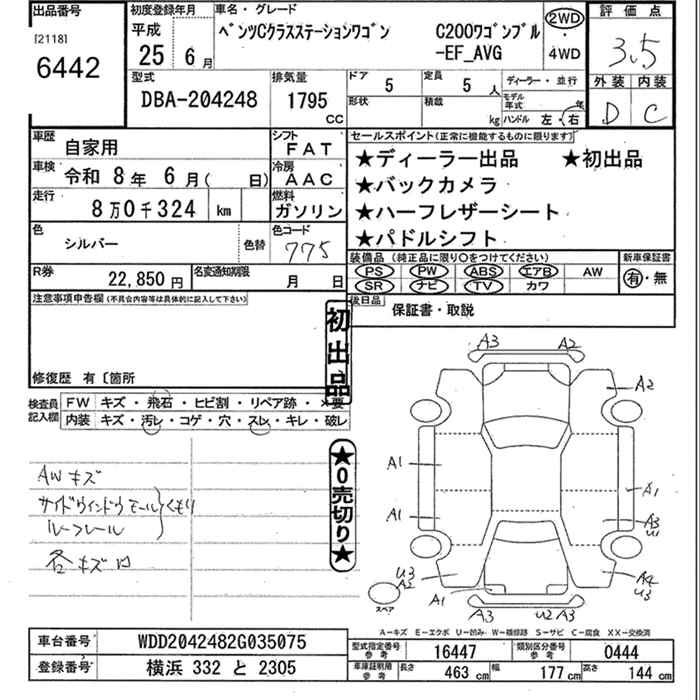 出品番号
[2118]
6442
初度登録年月
平成
25 6月
車名・グレード
ベンツCクラスステーションワゴン
C200ワゴンブル
-EF_AVG
2WD
・
4WD
評価点
3.5
外装 内装
D C
型式
DBA-204248
排気量
1795
CC
ドア 5
定員 5 人
ディーラー・並行
形状
積載 kg
モデル年式 年
ハンドル 左・右
車歴 自家用
シフト FAT
車検 令和 8年 6月( 日)
冷房 AAC
走行 8万0千324 km
燃料 ガソリン
色 シルバー
色替
色コード 775
R券 22,850円
名変通知期限 月 日
セールスポイント(正常に機能するものに限ります)
★ディーラー出品 ★初出品
★バックカメラ
★ハーフレザーシート
★パドルシフト
装備品 (純正品に限り○をつけてください)
PS PW ABS エアB AW
SR ナビ TV カワ
新車保証書
有・無
後日品
保証書・取説
注意事項申告欄(不具合内容等は具体的に記入して下さい)
修復歴 有〔箇所
初出品
検査員
記入欄
FW キズ・飛石・ヒビ割・リペア跡・×要
内装 キズ・汚レ・コゲ・穴・スレ・キレ・破レ
AWキズ
サイドウインドウモール
ルーフレール
くもり
各キズ
★0売切り★
A3 A2
A2
A1
A1
A1
A3
U1
U3
A2
A4
U3
A1
A3 U2 A3
スペア
A-キズ E-エクボ U-凹み W-補修跡 S-サビ C-腐食 XX-交換済
車台番号 WDD2042482G035075
登録番号 横浜 332 と 2305
型式指定番号
参考
16447
類別区分番号
参考
0444
車庫証明用
参考
長さ 463 cm
幅 177 cm
高さ 144 cm